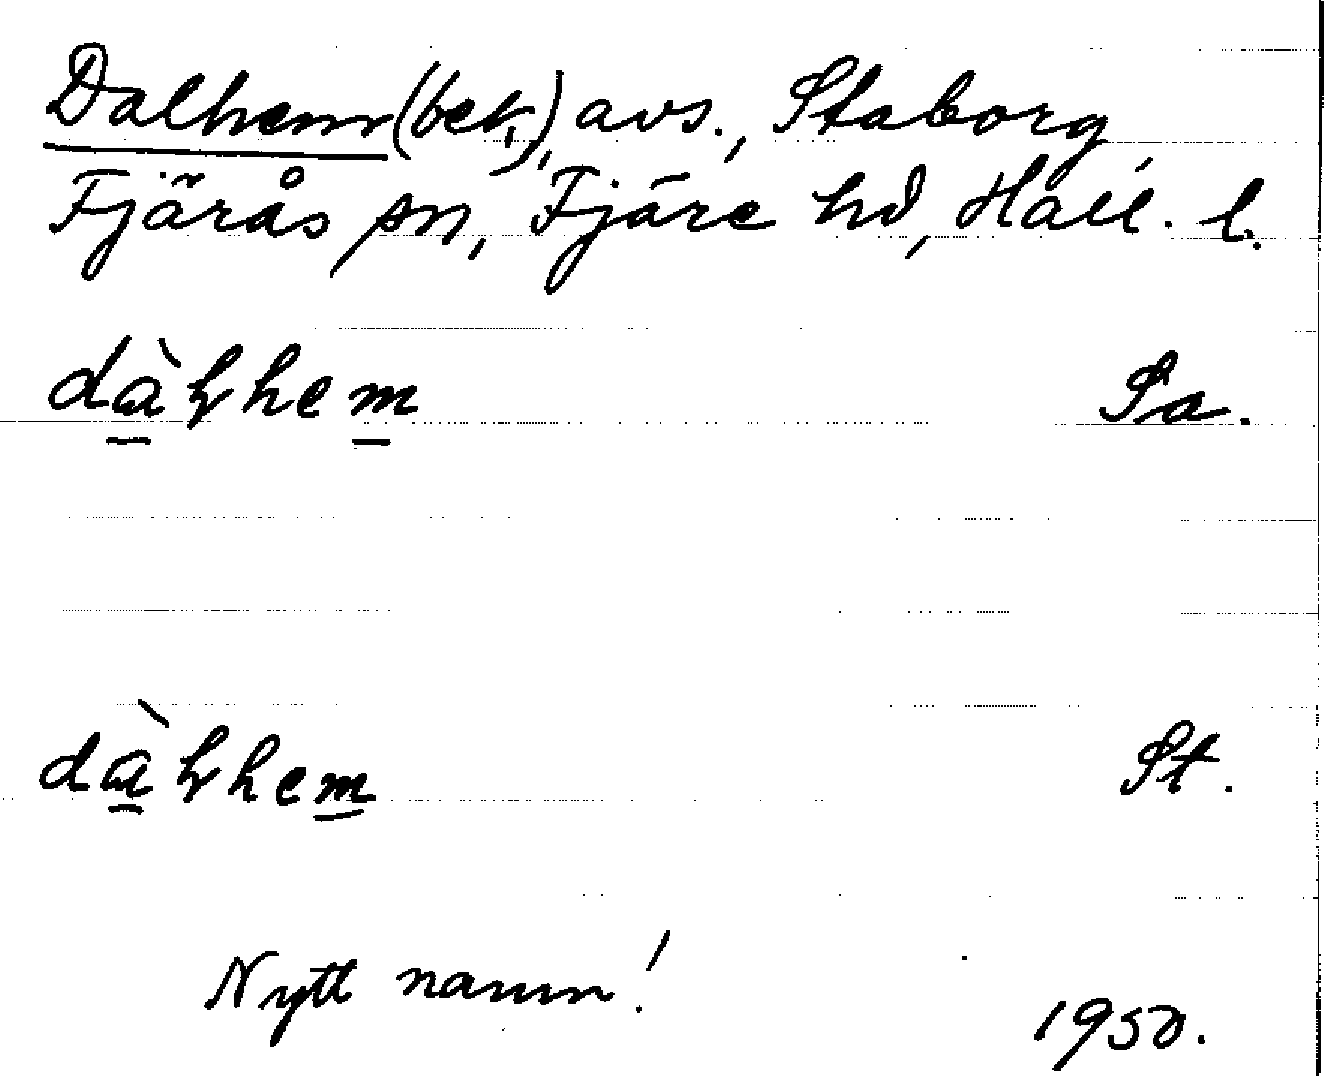 Dalhem (bek.), avs., Staborg,
Fjärås sn, Fjäre hd, Hall. l.
dàꝉhem Sa.
dàꝉhem St.
Nytt namn!
1950.